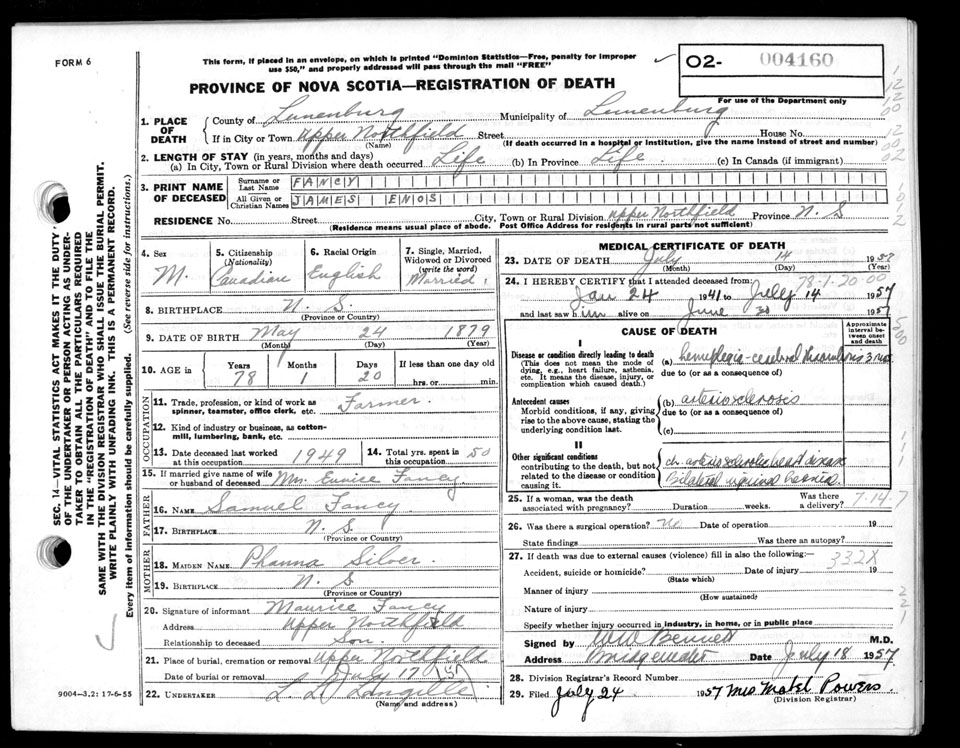 FORM 6
This form, if placed in an envelope, on which is printed "Dominion Statistics—Free, penalty for improper
use $50," and properly addressed will pass through the mail "FREE"
02- 004160
For use of the Department only
PROVINCE OF NOVA SCOTIA—REGISTRATION OF DEATH
1. PLACE OF DEATH
County of Lunenburg Municipality of Lunenburg
If in City or Town Upper Northfield Street House No.
(Name) (If death occurred in a hospital or institution, give the name instead of street and number)
2. LENGTH OF STAY (in years, months and days)
(a) In City, Town or Rural Division where death occurred Life (b) In Province Life (c) In Canada (if immigrant)
3. PRINT NAME OF DECEASED
Surname or Last Name FANCY
All Given or Christian Names JAMES ENOS
RESIDENCE No. Street City, Town or Rural Division Upper Northfield Province N. S
(Residence means usual place of abode. Post Office Address for residents in rural parts not sufficient)
4. Sex M.
5. Citizenship (Nationality) Canadian
6. Racial Origin English
7. Single, Married, Widowed or Divorced (write the word) Married
8. BIRTHPLACE N. S.
(Province or Country)
9. DATE OF BIRTH May 24 1879
(Month) (Day) (Year)
10. AGE in Years Months Days If less than one day old
78 1 20 hrs. or min.
OCCUPATION
11. Trade, profession, or kind of work as spinner, teamster, office clerk, etc. Farmer
12. Kind of industry or business, as cotton-mill, lumbering, bank, etc.
13. Date deceased last worked at this occupation 1949
14. Total yrs. spent in this occupation 50
15. If married give name of wife or husband of deceased Mrs. Eunice Fancy
FATHER
16. NAME Samuel Fancy
17. BIRTHPLACE N. S.
(Province or Country)
MOTHER
18. MAIDEN NAME Silver
19. BIRTHPLACE N. S
(Province or Country)
20. Signature of informant Maurice Fancy
Address Upper Northfield
Relationship to deceased Son.
21. Place of burial, cremation or removal Upper Northfield
Date of burial or removal July 17 1957
22. UNDERTAKER L. L. Langille
(Name and address)
9004—3.2: 17-6-55
MEDICAL CERTIFICATE OF DEATH
23. DATE OF DEATH July 14 1957
(Month) (Day) (Year)
24. I HEREBY CERTIFY that I attended deceased from: 78-1-20 00
Jan 24 1941 to July 14 1957
and last saw him alive on June 30 1957
CAUSE OF DEATH
Approximate interval between onset and death
I
Disease or condition directly leading to death
(This does not mean the mode of dying, e.g., heart failure, asthenia, etc. It means the disease, injury, or complication which caused death.)
(a) hemiplegia-cerebral thrombosis 3
due to (or as a consequence of)
Antecedent causes
Morbid conditions, if any, giving rise to the above cause, stating the underlying condition last.
(b) arteriosclerosis
due to (or as a consequence of)
(c)
II
Other significant conditions
contributing to the death, but not related to the disease or condition causing it.
ch. arteriosclerotic heart disease
Bilateral inguinal hernia
25. If a woman, was the death associated with pregnancy? Duration weeks. Was there a delivery? 7-14-7
26. Was there a surgical operation? No Date of operation 19
State findings Was there an autopsy?
27. If death was due to external causes (violence) fill in also the following: 332X
Accident, suicide or homicide? Date of injury 19
(State which)
Manner of injury
(How sustained)
Nature of injury
Specify whether injury occurred in industry, in home, or in public place
Signed by W W Bennett M.D.
Address Bridgewater Date July 18 1957
28. Division Registrar's Record Number
29. Filed July 24 1957 Mrs Mabel Powers
(Division Registrar)
SEC. 14—VITAL STATISTICS ACT MAKES IT THE DUTY
OF THE UNDERTAKER OR PERSON ACTING AS UNDER-
TAKER TO OBTAIN ALL THE PARTICULARS REQUIRED
IN THE "REGISTRATION OF DEATH" AND TO FILE THE
SAME WITH THE DIVISION REGISTRAR WHO SHALL ISSUE THE BURIAL PERMIT.
WRITE PLAINLY WITH UNFADING INK. THIS IS A PERMANENT RECORD.
Every item of information should be carefully supplied. (See reverse side for instructions.)